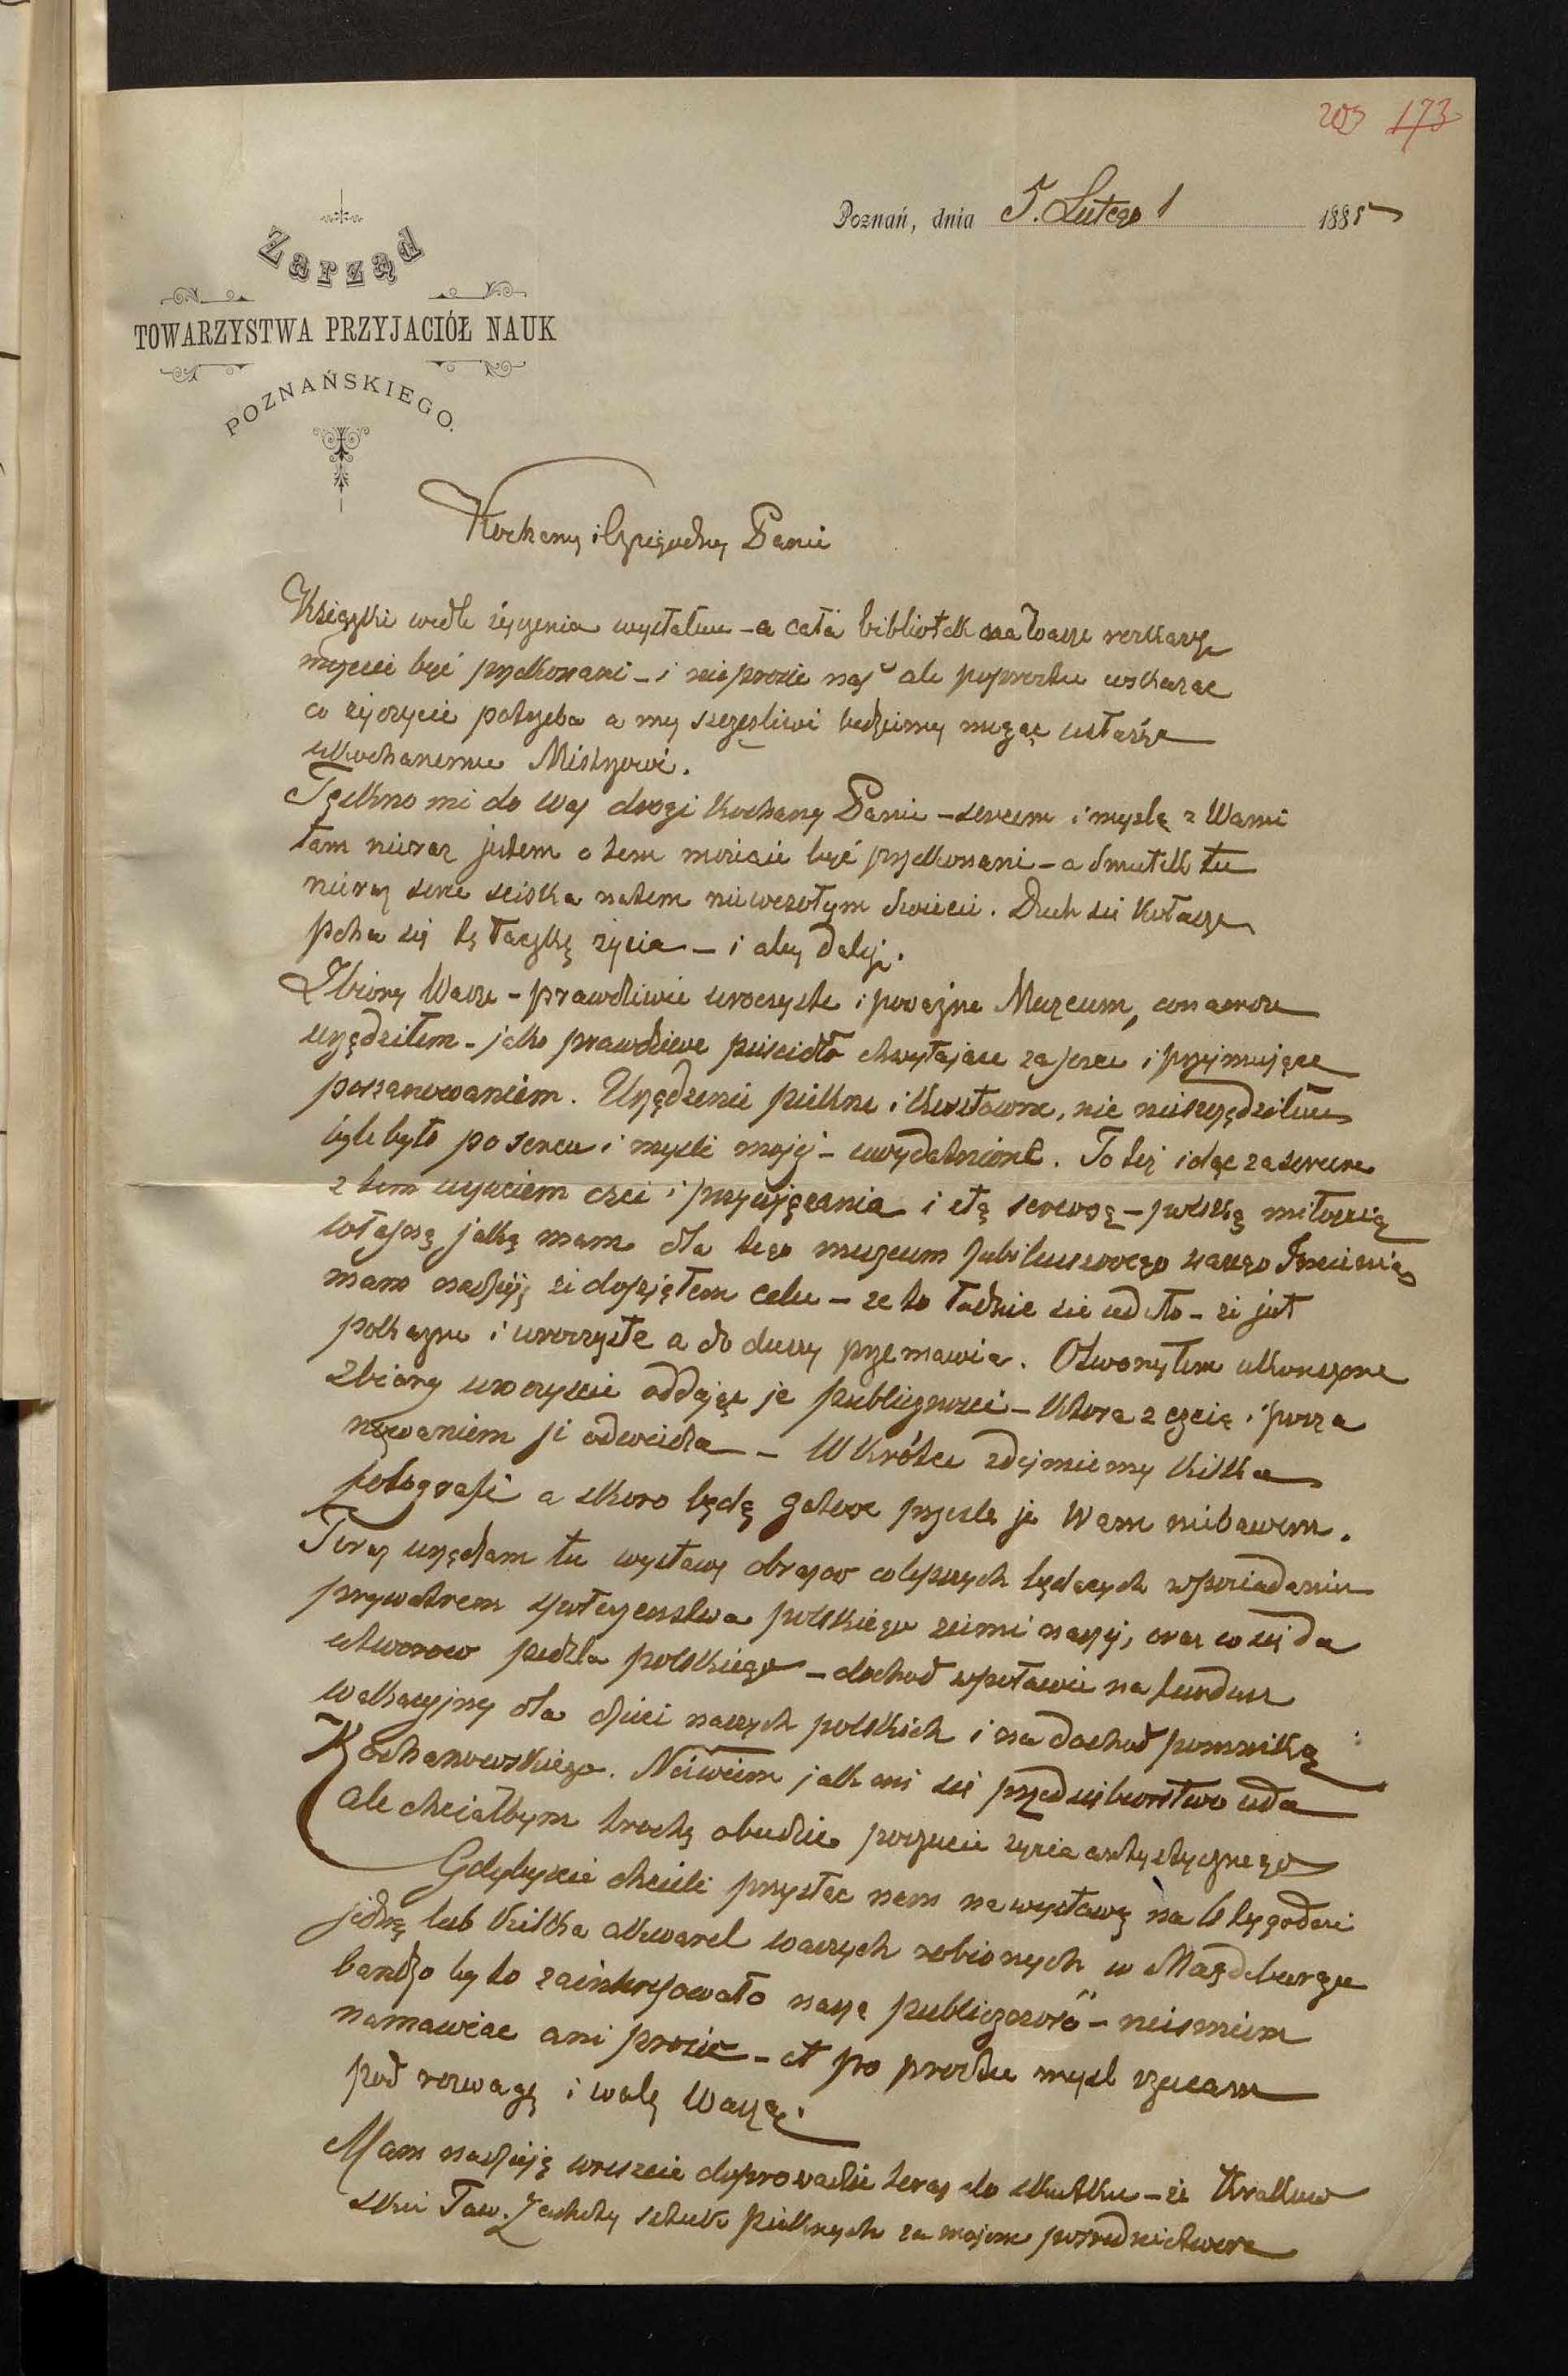 203 173
Poznań, dnia 5. Lutego 1885
Zarząd
TOWARZYSTWA PRZYJACIÓŁ NAUK
POZNAŃSKIEGO.
Kochany i Czcigodny Panie
Książki wedle życzenia wysłałem - a cała bibliotek na Wasze rozkazy
możecie być przekonani - i nie proście nas ale poprostu wskazac
co życzycie potrzeba a my szczęsliwi będziemy mogąc
ukochanemu Mistrzowi.
Tęskno mi do Was drogi Kochany Panie - sercem i myslą z Wami
tam nieraz jestem o tem możecie być przekonani - a smutek tu
nieraz serce sciska na tem niewesołym swiecie. Duch się kołacze
pcha się tę taczkę życia - i aby dalej.
Zbiory Wasze - prawdziwie uroczyste i poważne Muzeum,
urządziłem - jako prawdziwe puscidło chwytające za serce i przejmujące
poszanowaniem. Urządzenie piękne i kosztowne, nic nieszczędziłem
byle było po sercu i mysli mojej - uwydatnione. To też idąc za sercem
z tem uczuciem czci i przywiązania i tą serdeczną - polską miłoscią
własną jaką mam dla tego muzeum Jubileuszowego waszego Imienia
mam nadzieję żé dopiąłem celu - że to ładnie się udało - żé jest
pokazne i uroczyste a do duszy przemawia. Otworzyłem ukonczone
zbiory uroczyscie oddając je publicznosci - która z czcią i posza
nowaniem je odwiedza - Wkrótce zdejmiemy kilka
fotografi a skoro będą gotowe przesle je Wam niebawem.
Teraz urządzam tu wystawę obrazow celnych będących w posiadaniu
prywatnem społeczenstwa polskiego ziemi naszej, oraz co się da
utworow pędzla polskiego - dochod w połowie na fundusz
wakacyjny dla dzieci naszych polskich i na dochod pomnika
Kochanowskiego. Niewiem jak mi się przedsiębiorstwo uda
ale chciałbym trochę obudzic poczucie życia artystycznego
Gdybyscie chcieli przysłac nam na wystawę na 6 tygodni
jedną lub kilka akwarel waszych robionych w Magdeburgu
bardzo by to zainteresowało naszą publicznosc - niesmiem
namawiac ani prosic - ot po prostu mysl rzucam
pod rozwagę i wolę Waszą.
Mam nadzieję wreszcie doprowadzic teraz do skutku - żé Krakow
skie Tow. Zachęty sztuk pięknych za mojem posrednictwem